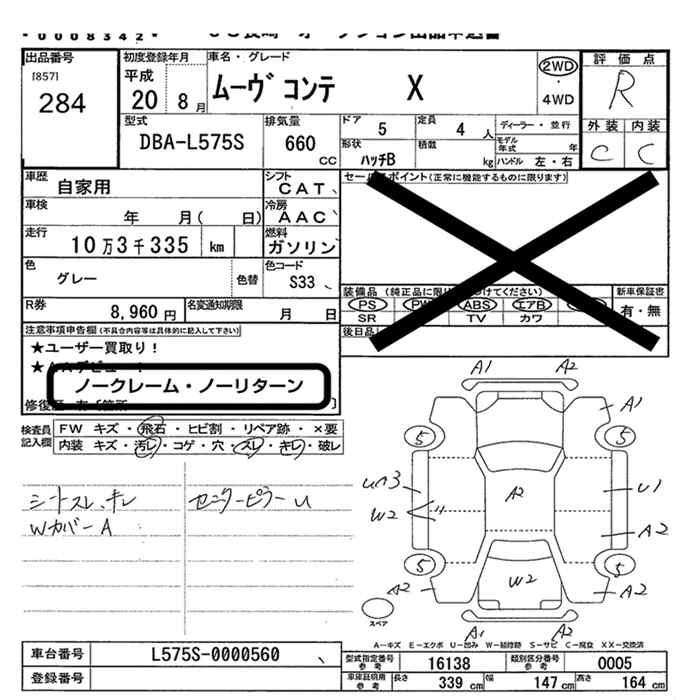 0008342
出品番号
[857]
284
初度登録年月
平成
20 8 月
車名・グレード
ムーヴ コンテ X
2WD
・
4WD
評価点
R
外装 内装
C C
型式
DBA-L575S
排気量
660 CC
ドア 5
定員 4 人
形状
ハッチB
積載 kg
ディーラー・並行
モデル年式 年
ハンドル 左・右
車歴
自家用
シフト
CAT
車検
年 月( 日)
冷房
AAC
走行
10万3千335 km
燃料
ガソリン
色
グレー
色替
色コード
S33
R券
8,960 円
名変通知期限
月 日
セールスポイント(正常に機能するものに限ります)
PS ABS エアB
SR TV カワ
新車保証書
有・無
注意事項申告欄(不具合内容等は具体的に記入して下さい)
★ユーザー買取り!
ノークレーム・ノーリターン
検査員記入欄
FW キズ・飛石・ヒビ割・リペア跡・×要
内装 キズ・汚レ・コゲ・穴・スレ・キレ・破レ
シートスレ、キレ
Wカバー A
センターピラー U
A1 A2
A1
5 5
U3 A2 U1
W2 〃 A2
5 5
A2 W2 A2
スペア
A1 A2
A-キズ E-エクボ U-凹み W-補修跡 S-サビ C-腐食 XX-交換済
車台番号
L575S-0000560
登録番号
型式指定番号参考
16138
類別区分番号参考
0005
車庫証明用参考
長さ 339 cm
幅 147 cm
高さ 164 cm